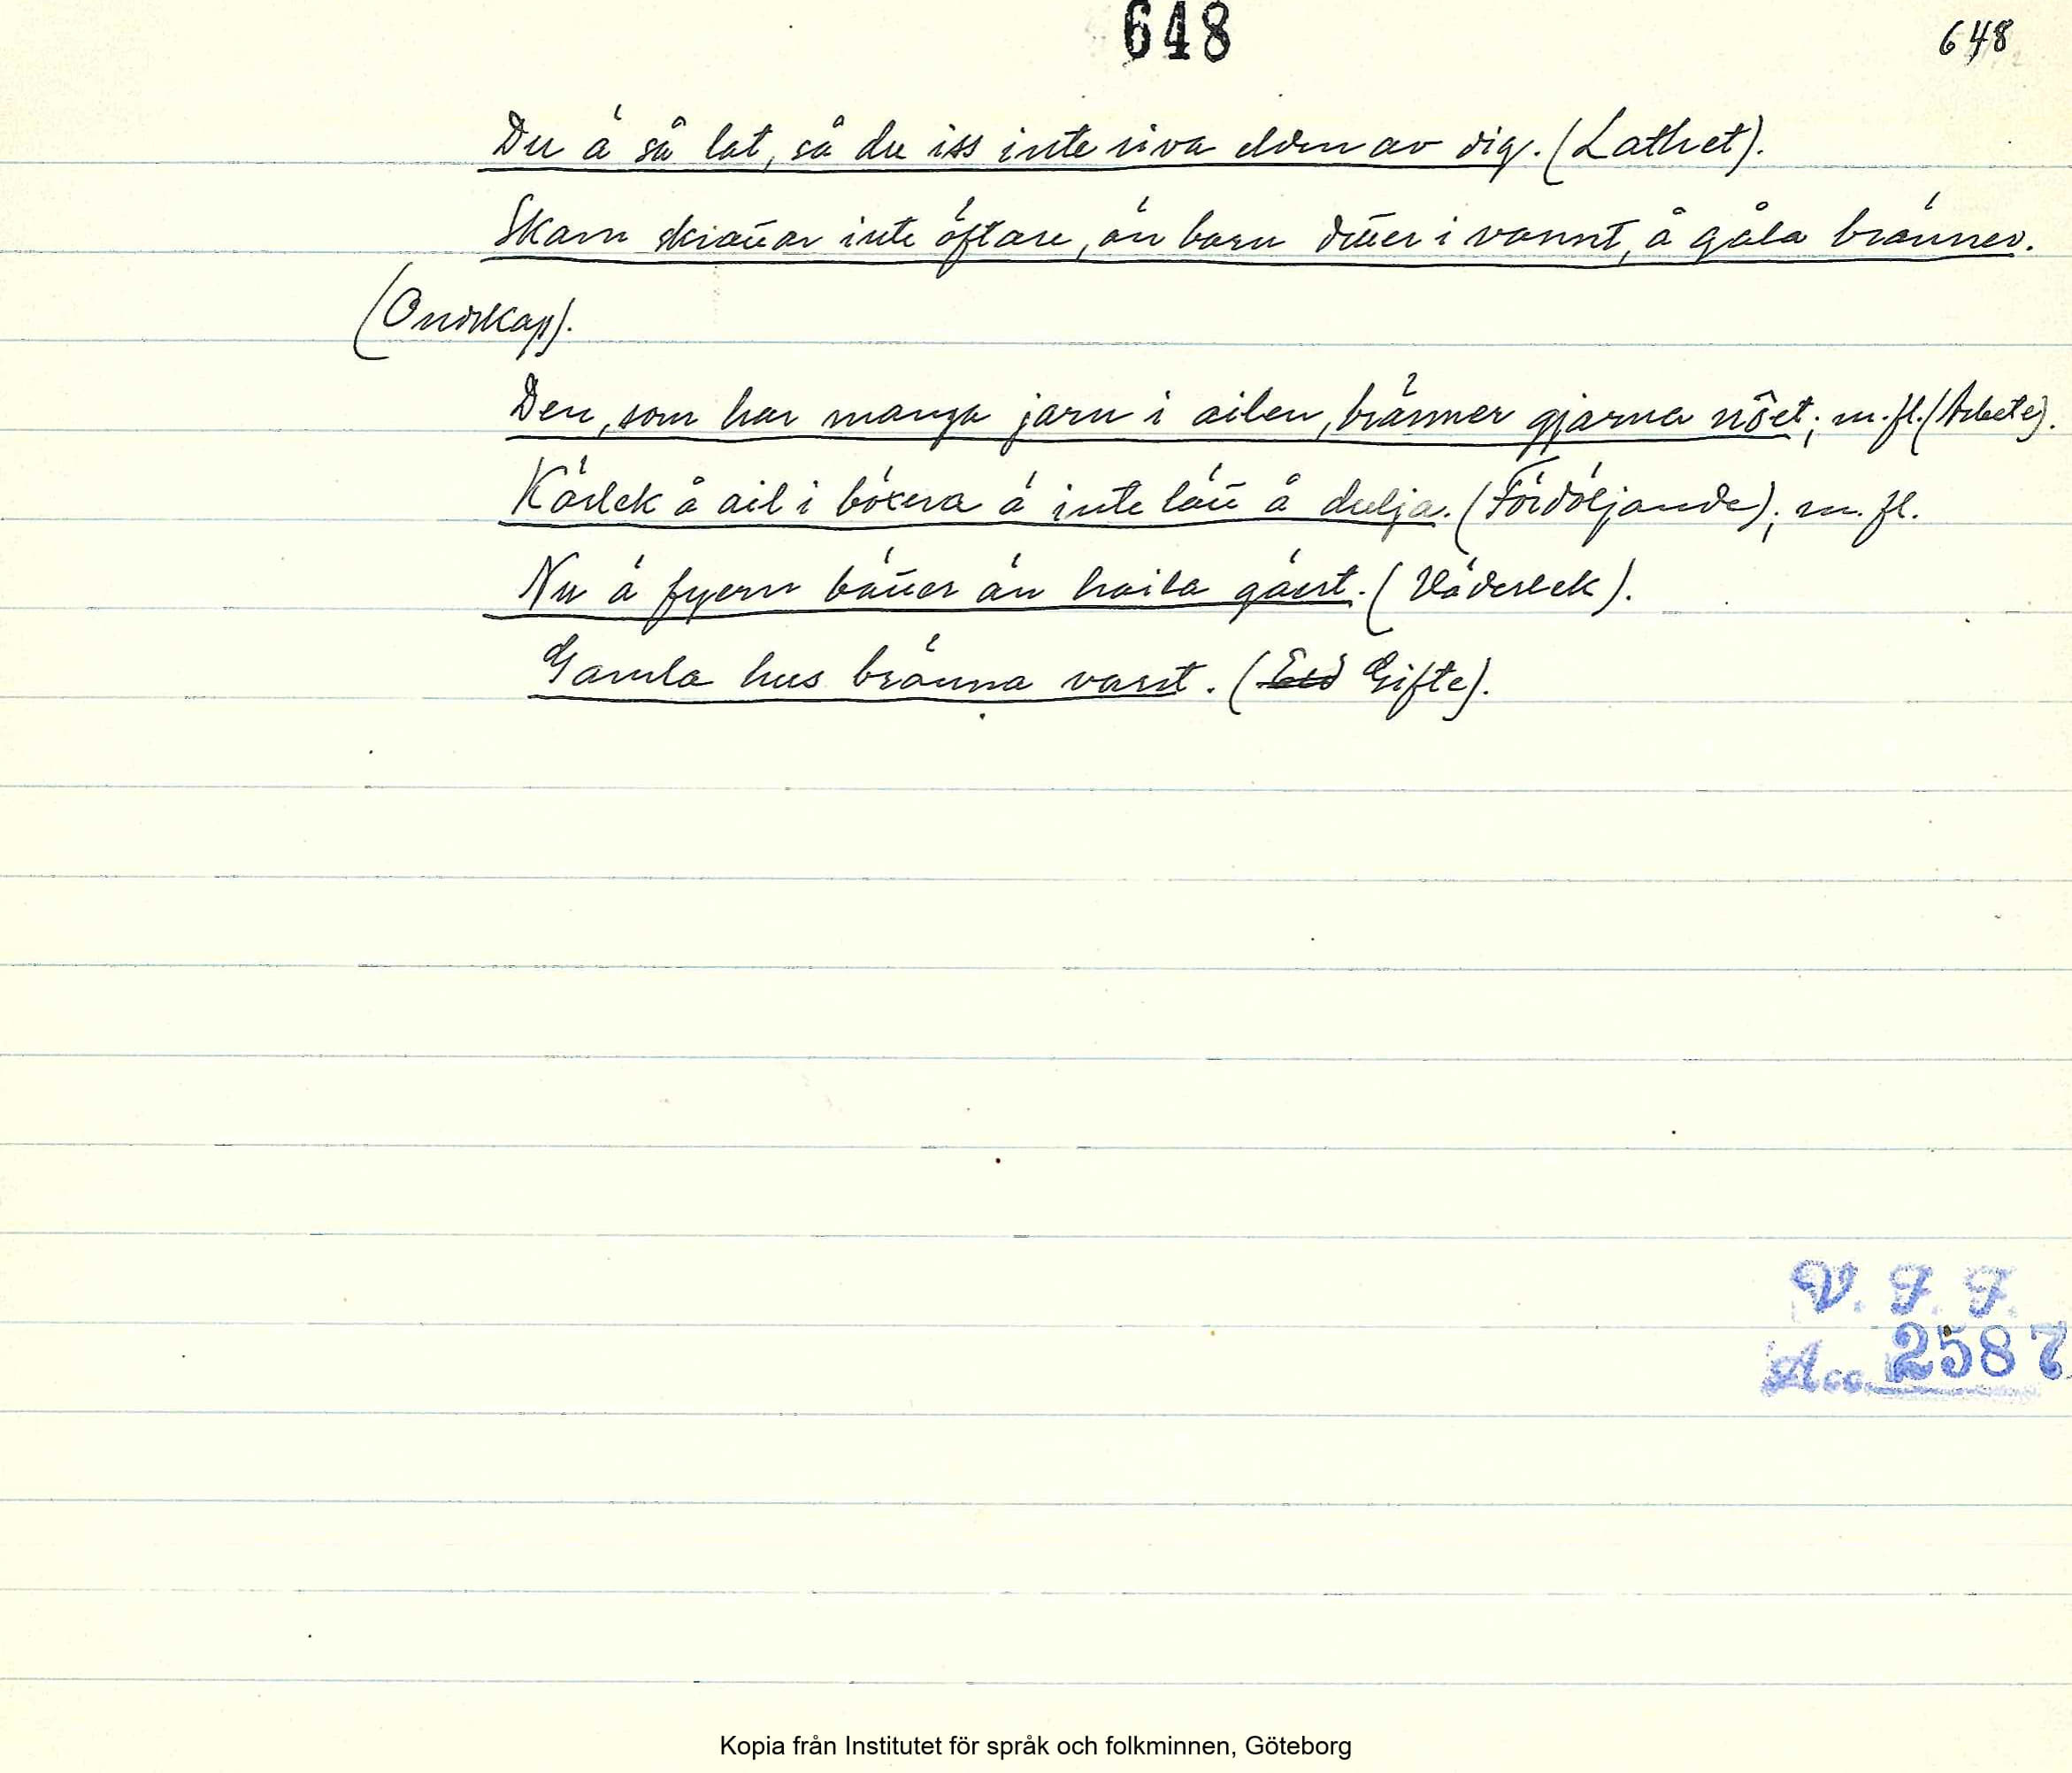 648
648
Du ä så lat, så du iss inte riva elden av dig. (Lathet).
Skam skrattar inte öftare, än barn dītter i vannt, å gåla bränner.
(Ondskap).
Den, som har manga jarn i ailen, bränner gjarna nôet; m.fl. (Arbete).
Kärlek å ail i böxera ä inte lätt å dulja. (Fördöljande); m. fl.
Nu ä fyern bätter än haila gäert. (Väderlek).
Gamla hus bränna varst. (Gifte).
V. F. F.
Acc. 2587
Kopia från Institutet för språk och folkminnen, Göteborg